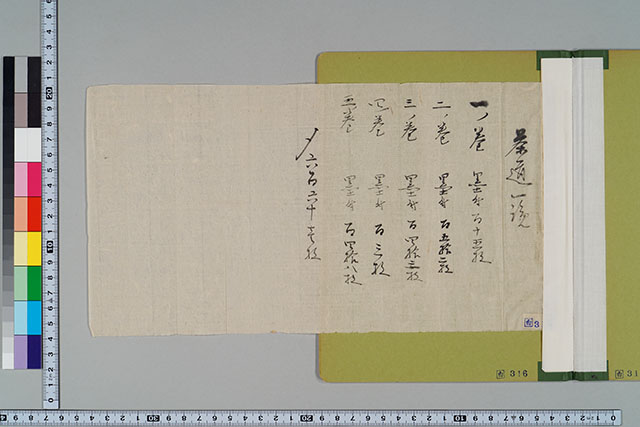 茶道一覧
一ノ巻 墨付百十五枚
二ノ巻 墨付百五拾二枚
三ノ巻 墨付百四拾三枚
四ノ巻 墨付百三枚
五ノ巻 墨付百四拾八枚
〆六百六十壱枚
316